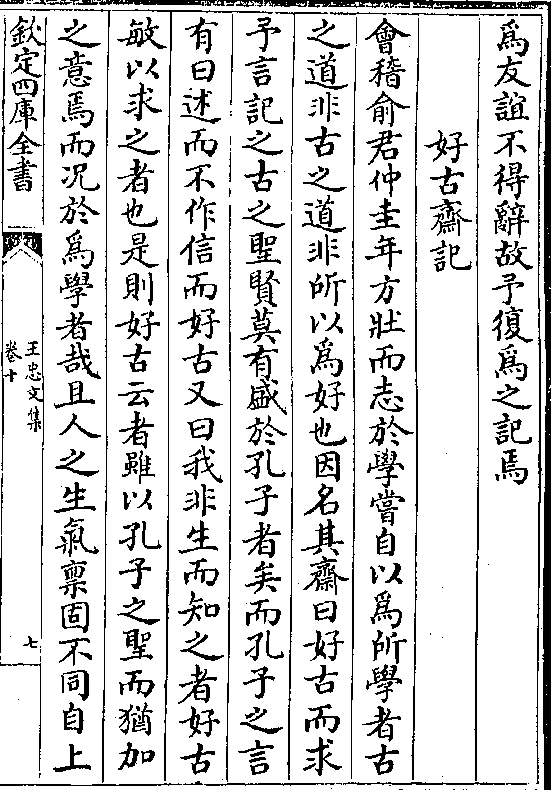 為友誼不得辭故予復為之記焉
好古齋記
會稽俞君仲圭年方壯而志於學嘗自以為所學者古
之道非古之道非所以為好也因名其齋曰好古而求
予言記之古之聖賢莫有盛於孔子者矣而孔子之言
有曰述而不作信而好古又曰我非生而知之者好古
敏以求之者也是則好古云者雖以孔子之聖而猶加
之意焉而况於為學者哉且人之生氣禀固不同自上
欽定四庫全書
王忠文集
卷十
七